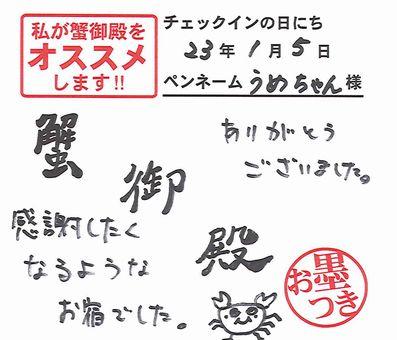 私が蟹御殿を
オススメ
します!!
チェックインの日にち
23年1月5日
ペンネーム うめちゃん 様
蟹
御
殿
ありがとう
ございました。
感謝したく
なるような
お宿でした。
お墨つき